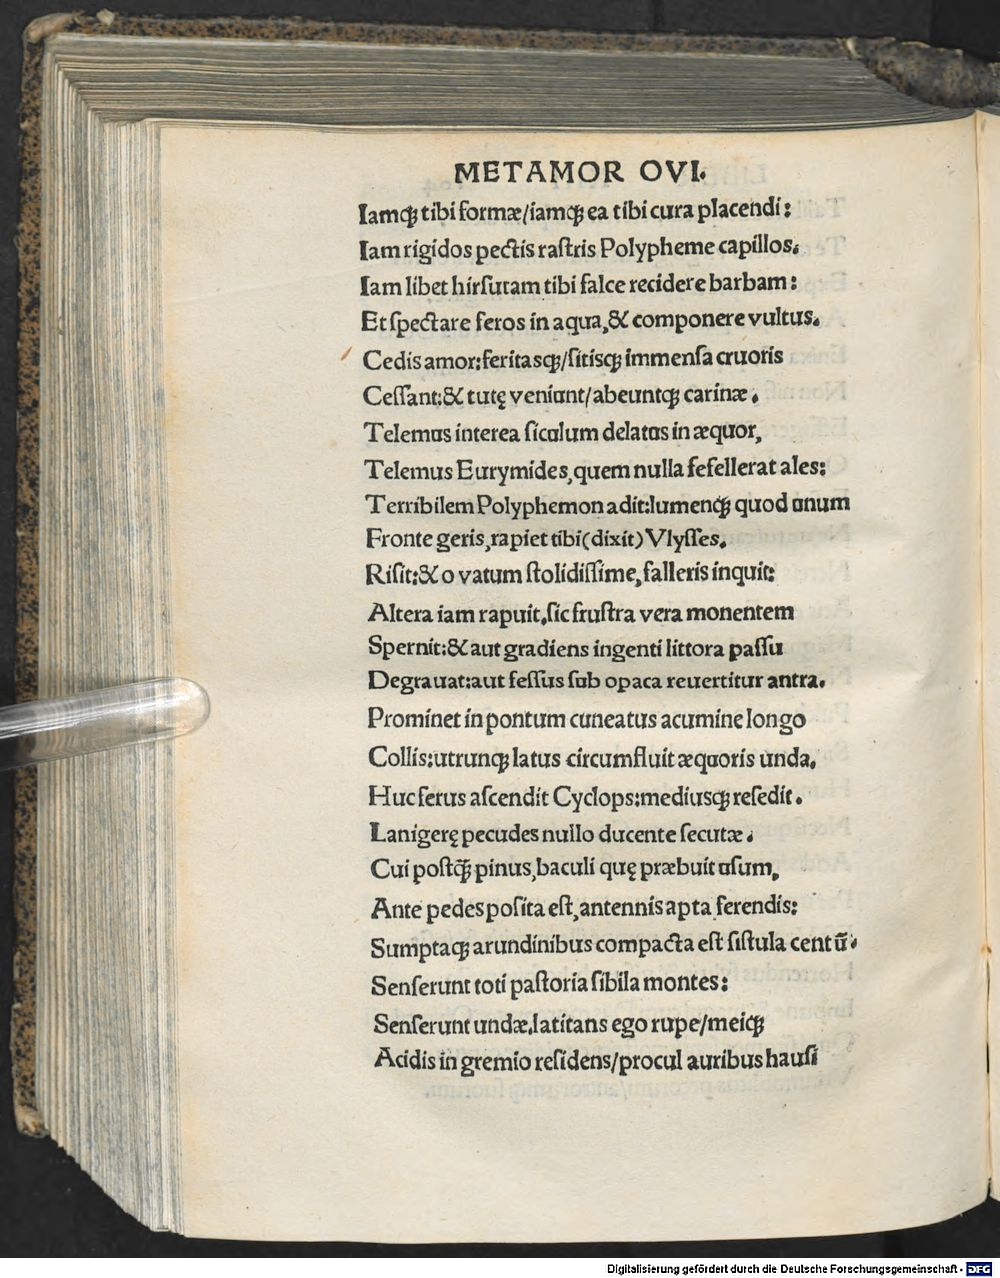 METAMOR OVI.
Iamqꝫ tibi formæ/iamqꝫ ea tibi cura placendi:
Iam rigidos pectis raſtris Polypheme capillos.
Iam libet hirſutam tibi falce recidere barbam:
Et ſpectare feros in aqua,& componere vultus.
Cedis amor:feritasqꝫ/ſitisqꝫ immenſa cruoris
Ceſſant:& tutę veniunt/abeuntqꝫ carinæ.
Telemus interea ſiculum delatus in æquor,
Telemus Eurymides,quem nulla fefellerat ales:
Terribilem Polyphemon adit:lumenqꝫ quod unum
Fronte geris,rapiet tibi(dixit)Vlyſſes.
Riſit:& o vatum ſtolidiſſime,falleris inquit:
Altera iam rapuit.ſic fruſtra vera monentem
Spernit:& aut gradiens ingenti littora paſſu
Degrauat:aut feſſus ſub opaca reuertitur antra.
Prominet in pontum cuneatus acumine longo
Collis:utrunqꝫ latus circumfluit æquoris unda.
Huc ferus aſcendit Cyclops:mediusqꝫ reſedit.
Lanigerę pecudes nullo ducente ſecutæ.
Cui poſtqꝫ̄ pinus,baculi quę præbuit uſum,
Ante pedes poſita eſt,antennis apta ferendis:
Sumptaqꝫ arundinibus compacta eſt fiſtula centū.
Senſerunt toti paſtoria ſibila montes:
Senſerunt undæ.latitans ego rupe/meiqꝫ
Acidis in gremio reſidens/procul auribus hauſi
Digitalisierung gefördert durch die Deutsche Forschungsgemeinschaft - DFG